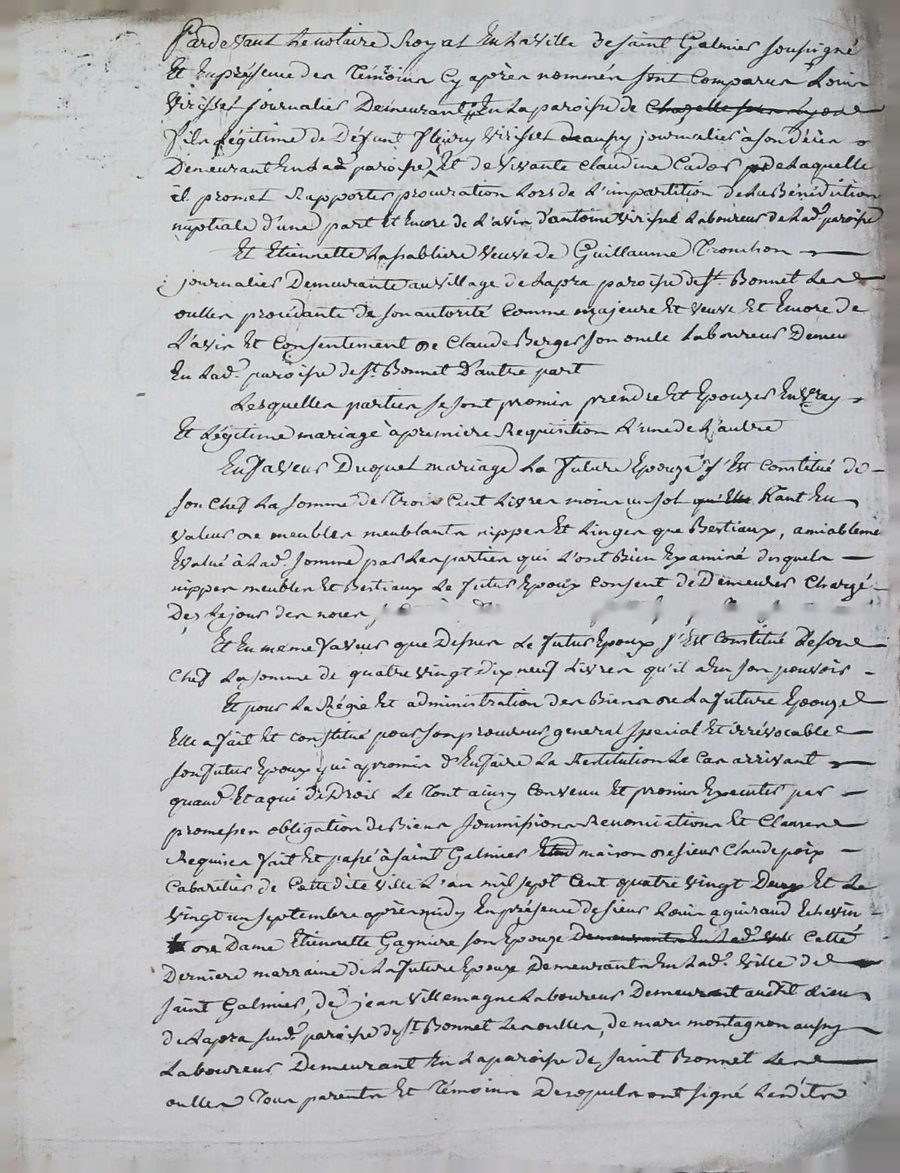 Pardevant Le notaire Royal En La Ville de Saint Galmier soussigné
Et En présence des Témoins Cy après nommés sont comparus Louis
Virisset journalier Demeurant En La paroisse de Chazelle sur Lyon
fils Légitime de Défunt fleury Virisset aussy journalier à son décès
Demeurant En Lad. paroisse, Et de Vivante Claudine Cador de Laquelle
il promet Rapporter procuration Lors de L'impartition de La Bénédiction
nuptiale d'une part Et Encore de L'avis d'antoine Virisset Laboureur de Lad. paroisse
Et Etiennette Lasabliere Veuve de Guillaume Tronchon
journalier Demeurante au Village de Lapra paroisse de St. Bonnet Les
oulles procédante de son autorité comme majeure Et veuve Et Encore de
L'avis Et Consentement de Claude Berger son oncle Laboureur Demeu
En Lad. paroisse de St. Bonnet D'autre part
Lesquelles parties se sont promis prendre Et Epouzer En vray
Et Légitime mariage à première Requisition L'une de L'autre
En faveur Duquel mariage La future Epouze s'Est Constitué de
son Chef La somme de Trois Cent Livres moins un sol qu'Elle Tant En
valeur de meubles meublants nippes Et Linges que Bestiaux, amiableme
Evalué à Lad. somme par Les parties qui L'ont Bien Examiné desquels
nippes meubles Et Bestiaux Le futur Epoux Consent de Demeurer Chargé
Dès Le jour des noces
Et En même faveur que Dessus Le futur Epoux s'Est Constitué De son
Chef La somme de quatre vingt dix neuf Livres qu'il a En son pouvoir
Et pour La Régie Et administration des Biens de La future Epouze
Elle a fait Et constitué pour son procureur general spécial Et irrévocable
son futur Epoux qui a promis d'En faire La Restitution Le Cas arrivant
quand Et a qui de Droit Le Tout ainsy Convenu Et promis Executer par
promesses obligation de Biens soumissions Renonciations Et Clauses
Requises fait Et passé à Saint Galmier maison de sieur Claude poix
Cabaretier de Cette dite Ville L'an mil sept Cent quatre vingt Deux Et Le
vingt un septembre après midy En présence de sieur Louis aguiraud Echevin
de Dame Etiennette Gagniere son Epouze Demeurants En Lad. Ville Cette
Dernière marraine de La future Epouze Demeurants En Lad. Ville de
Saint Galmier, de jean Villemagne Laboureur Demeurant audit Lieu
de Lapra sud. paroisse de St. Bonnet Les oulles, de marc montagnon aussy
Laboureur Demeurant En La paroisse de Saint Bonnet Les
oulles Tous parents Et Témoins Desquels ont signé Lesdits